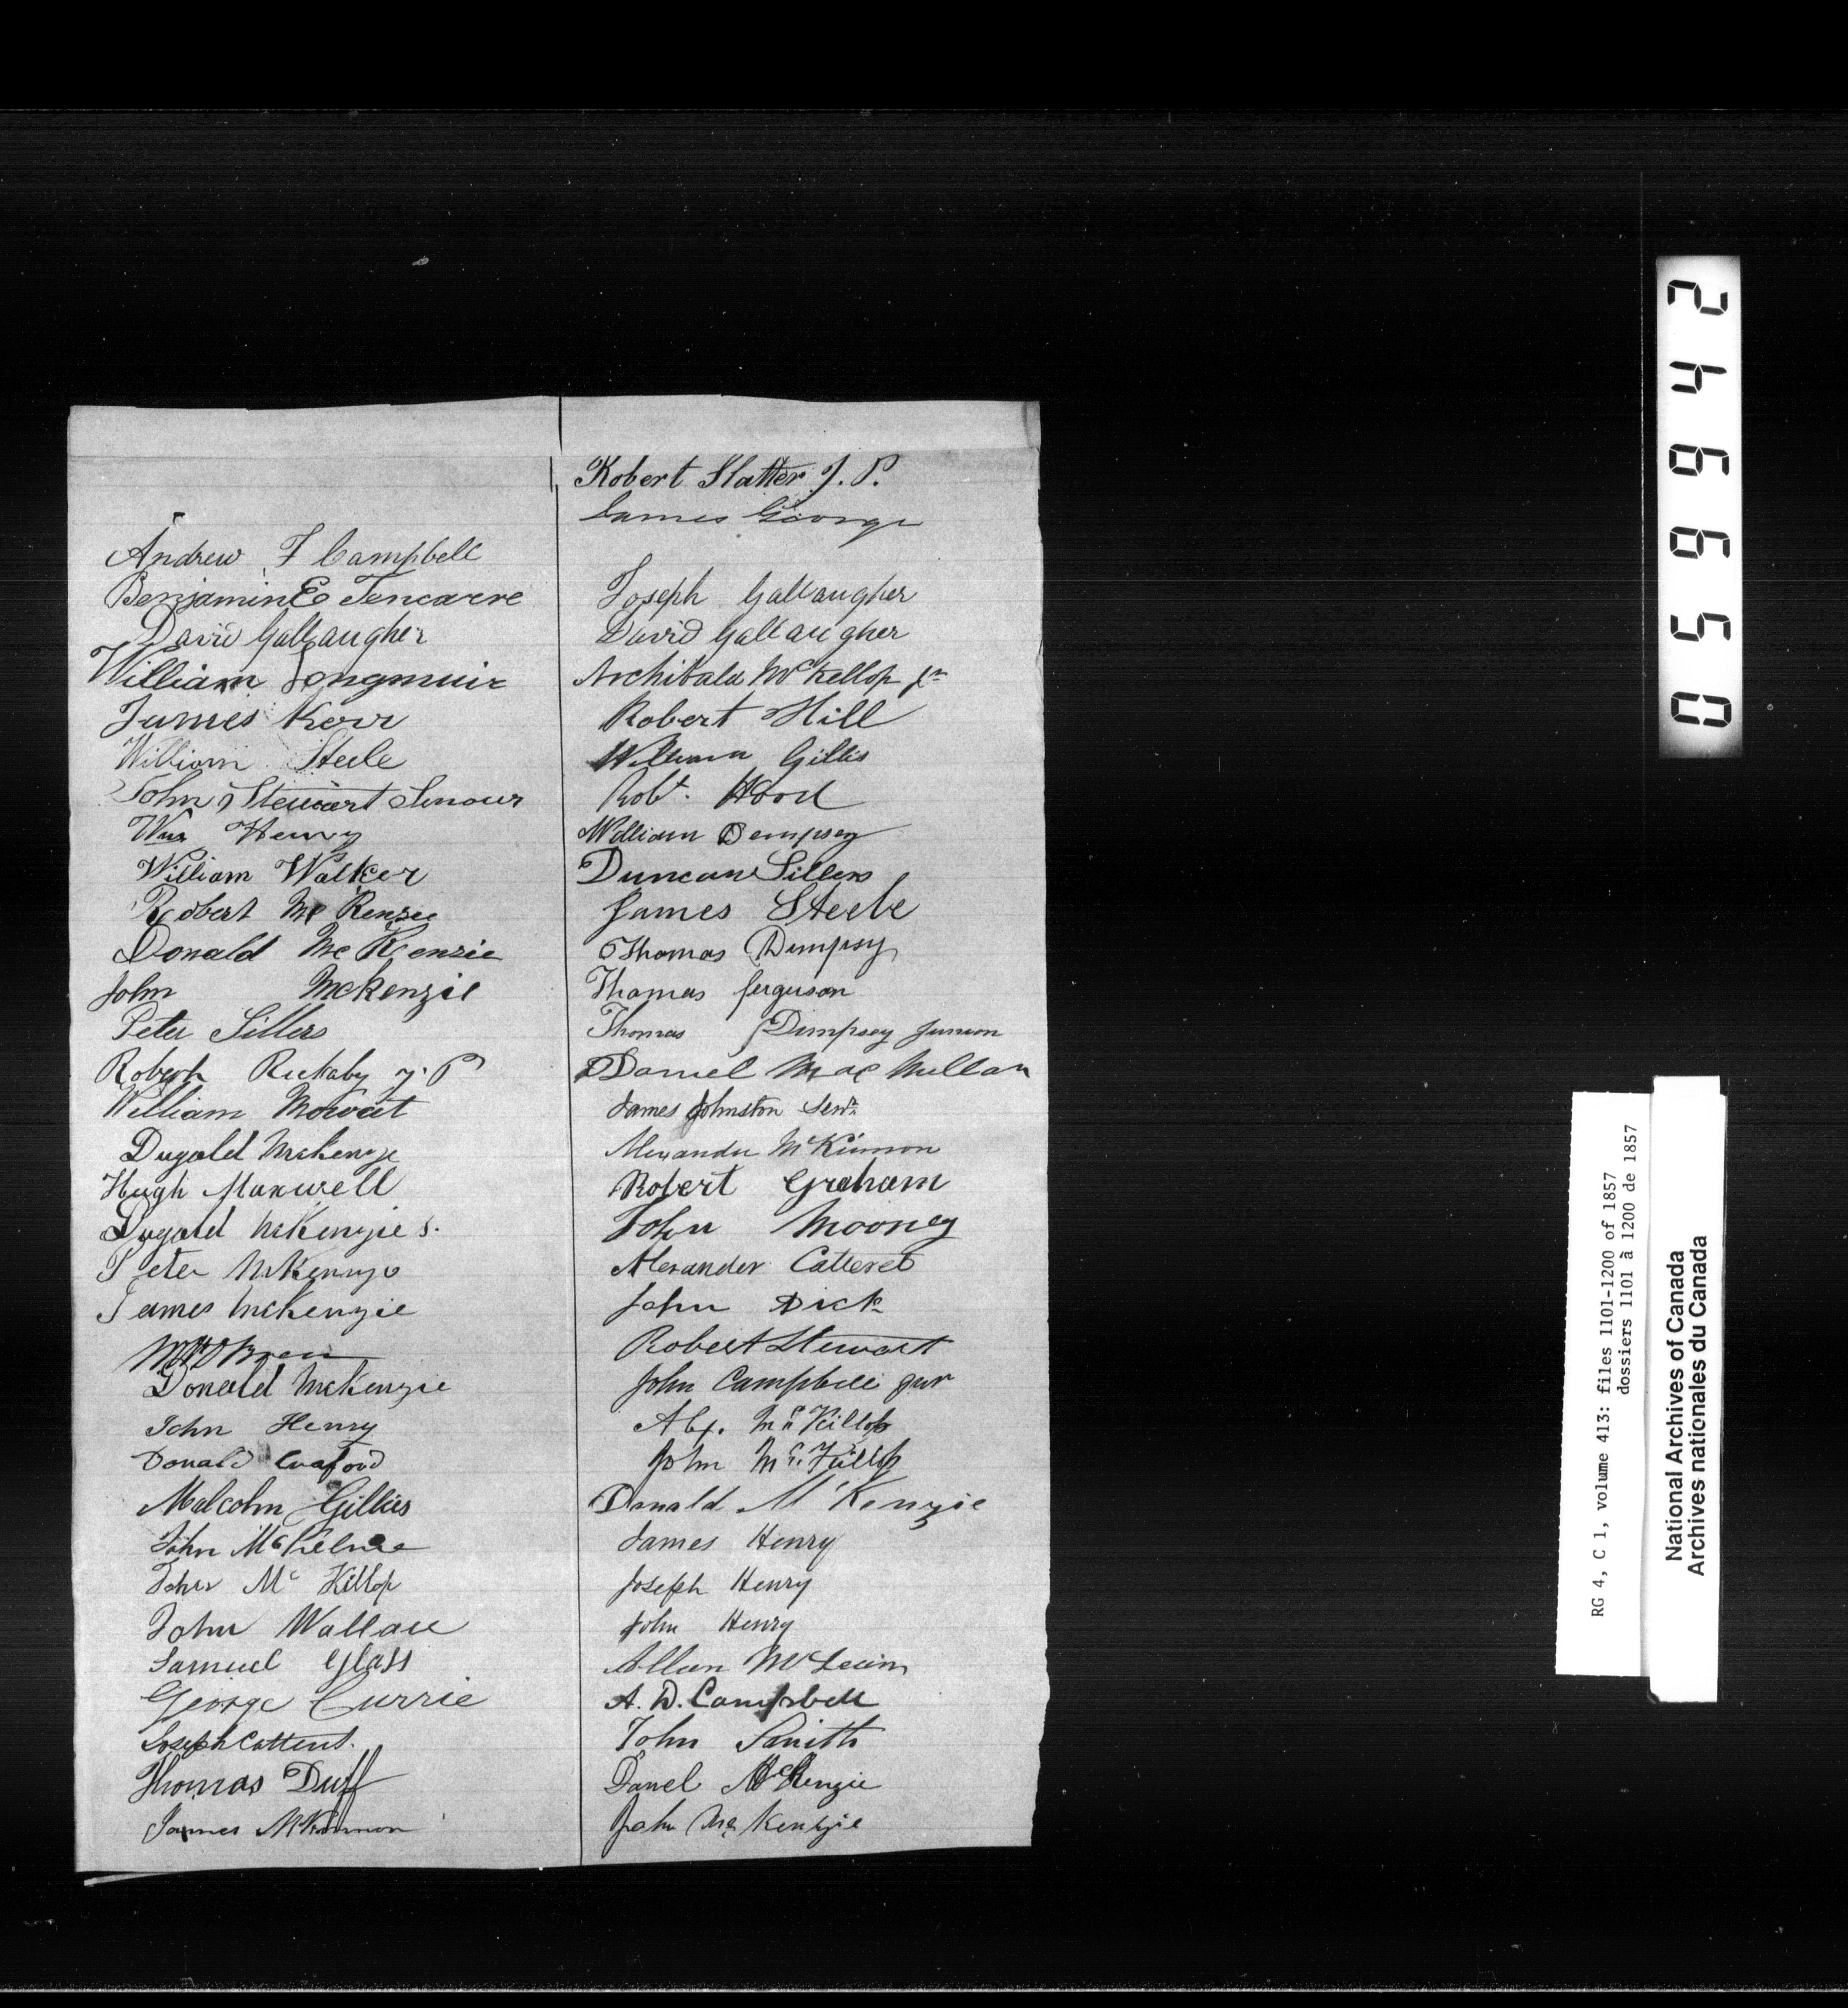 Andrew F Campbell
Benjamin E Tencarre
David Gallaugher
William Longmuir
James Kerr
William Steele
John Stewart Senour
Wm Henry
William Walker
Robert Mc Kenzie
Donald Mc Kenzie
John McKenzie
Peter Sillers
Robert Rickaby J. P
William Mowat
Dugald McKenzie
Hugh Maxwell
Dugald McKenzie S.
Peter McKenzie
James McKenzie
Donald McKenzie
John Henry
Donald Craford
Malcolm Gillies
John
John Mc Killop
John Wallace
Samuel Glass
George Currie
Joseph
Thomas Duff
James McKinnon
Robert Slatter J. P.
James George
Joseph Gallaugher
David Gallaugher
Archibald McKellop jr
Robert Hill
William Gillis
Robt. Hood
William Dempsey
Duncan Sillers
James Steele
Thomas Dempsy
Thomas ferguson
Thomas Dempsey Junion
Daniel Mac Mullan
James Johnston Senr
Alexander McKinnon
Robert Graham
John Mooney
Alexander
John Dick
Robert Stewart
John Campbell jur
Alx. Mc Killop
John Mc.
Donald McKenzie
James Henry
Joseph Henry
John Henry
Allan McLean
A. D. Campbell
John Smith
Danel McKenzie
John McKenzie
2 4 6 6 5 0
RG 4, C 1, volume 413: files 1101-1200 of 1857
dossiers 1101 à 1200 de 1857
National Archives of Canada
Archives nationales du Canada